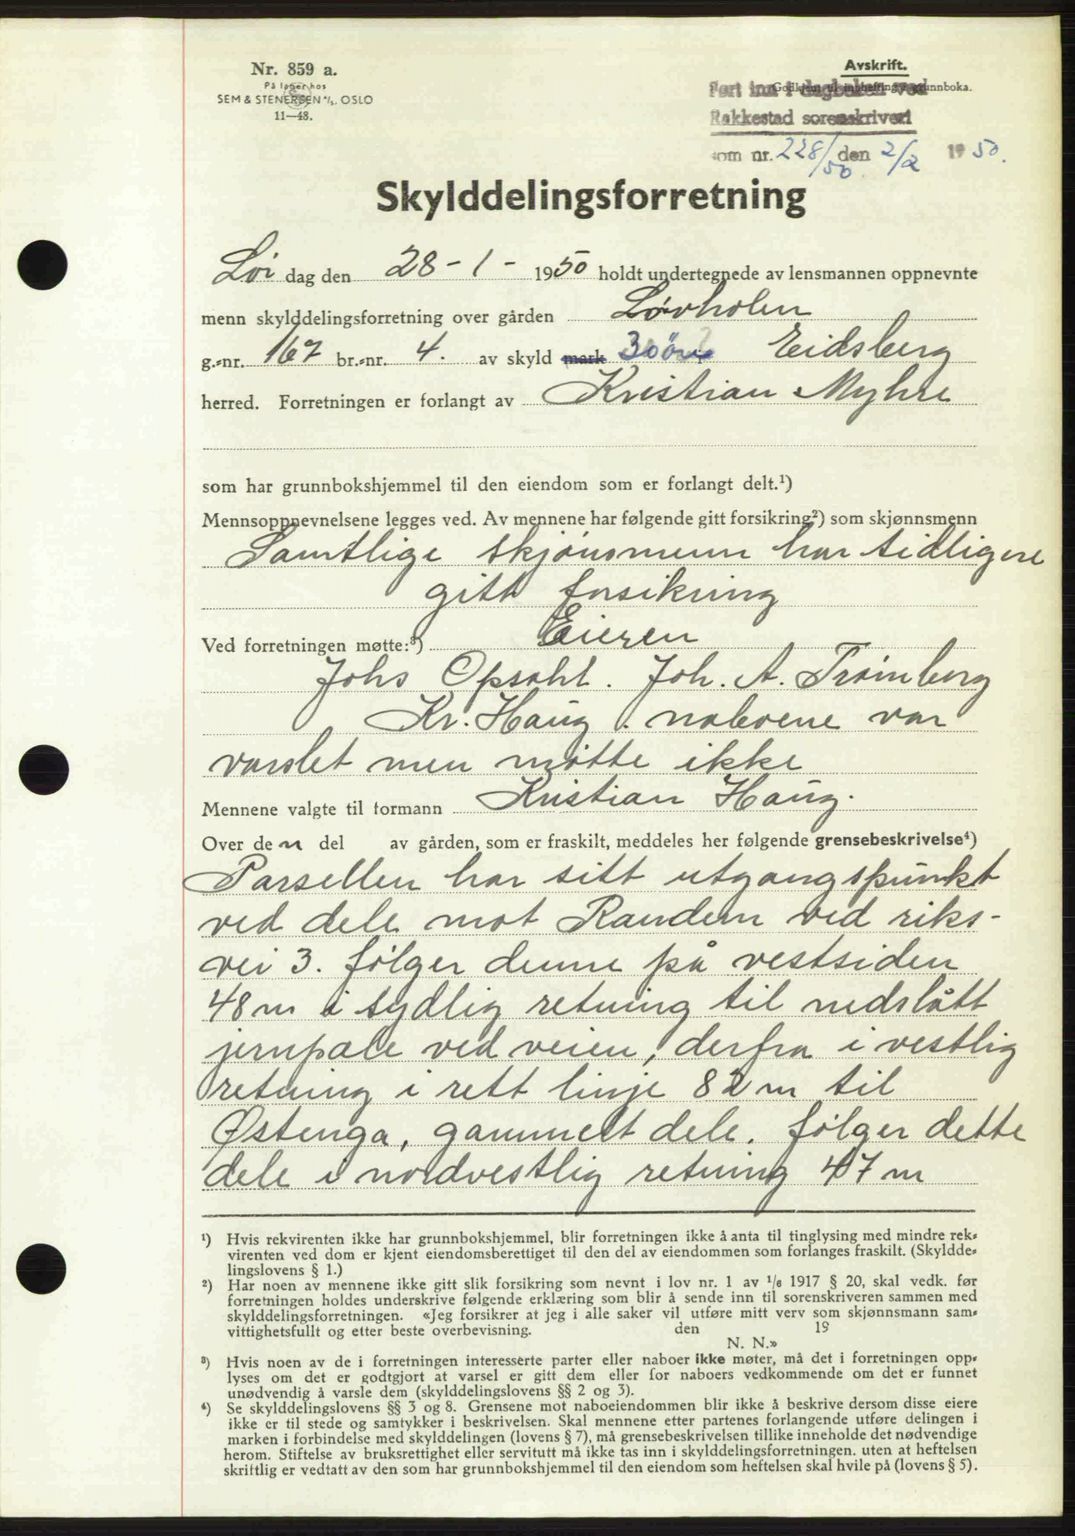 Nr. 859 a.
På lager hos
SEM & STENERSEN A/S, OSLO
11—48.
Avskrift.
Ført inn i dagboken ved
Rakkestad sorenskriveri
som nr. 228/50 den 2/2 1950.
Skylddelingsforretning
Lør dag den 28-1- 1950 holdt undertegnede av lensmannen oppnevnte
menn skylddelingsforretning over gården Lövholen
g.-nr. 167 br.-nr. 4. av skyld mark 30 öre Eidsberg
herred. Forretningen er forlangt av Kristian Myhre
som har grunnbokshjemmel til den eiendom som er forlangt delt.¹)
Mennsoppnevnelsene legges ved. Av mennene har følgende gitt forsikring²) som skjønnsmenn
Samtlige skjönsmenn har tidligere
gitt forsikring
Ved forretningen møtte:³) Eieren
Johs Opsahl. Joh. A. Trömborg
Kr. Haug. naboene var
varslet men mötte ikke
Mennene valgte til formann Kristian Haug.
Over den del av gården, som er fraskilt, meddeles her følgende grensebeskrivelse⁴)
Parsellen har sitt utgangspunkt
ved dele mot Randem ved riks-
vei 3. fölger denne på vestsiden
48 m i sydlig retning til nedslått
jernpæle ved veien, derfra i vestlig
retning i rett linje 82 m til
Østenga, gammelt dele. fölger dette
dele i nordvestlig retning 47 m
¹) Hvis rekvirenten ikke har grunnbokshjemmel, blir forretningen ikke å anta til tinglysing med mindre rek-
virenten ved dom er kjent eiendomsberettiget til den del av eiendommen som forlanges fraskilt. (Skyldde-
lingslovens § 1.)
²) Har noen av mennene ikke gitt slik forsikring som nevnt i lov nr. 1 av 1/6 1917 § 20, skal vedk. før
forretningen holdes underskrive følgende erklæring som blir å sende inn til sorenskriveren sammen med
skylddelingsforretningen. «Jeg forsikrer at jeg i alle saker vil utføre mitt verv som skjønnsmann sam-
vittighetsfullt og etter beste overbevisning. den 19
N. N.»
³) Hvis noen av de i forretningen interesserte parter eller naboer ikke møter, må det i forretningen opp-
lyses om det er godtgjort at varsel er gitt dem eller for naboers vedkommende om det er funnet
unødvendig å varsle dem (skylddelingslovens §§ 2 og 3).
⁴) Se skylddelingslovens §§ 3 og 8. Grensene mot naboeiendommen blir ikke å beskrive dersom disse eiere
ikke er til stede og samtykker i beskrivelsen. Skal mennene etter partenes forlangende utføre delingen i
marken i forbindelse med skylddelingen (lovens § 7), må grensebeskrivelsen tillike inneholde det nødvendige
herom. Stiftelse av bruksrettighet eller servitutt må ikke tas inn i skylddelingsforretningen, uten at heftelsen
skriftlig er vedtatt av den som har grunnbokshjemmel til den eiendom som heftelsen skal hvile på (lovens § 5).